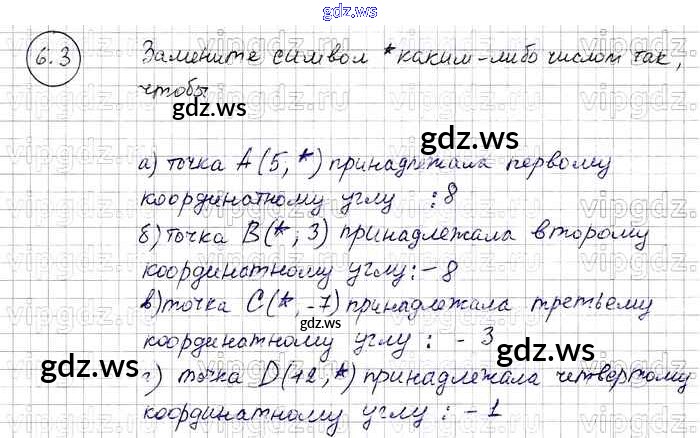 gdz.ws
6.3 Замените символ * каким-либо числом так,
чтобы
gdz.ws
gdz.ws
а) точка A(5, *) принадлежала первому
координатному углу : 8
б) точка B(*; 3) принадлежала второму
координатному углу: -8
в) точка C(*, -7) принадлежала третьему
gdz.ws
координатному углу : - 3
gdz.ws
gdz.ws
г) точка D(12, *) принадлежала четвертому
координатному углу : -1
gdz.ws